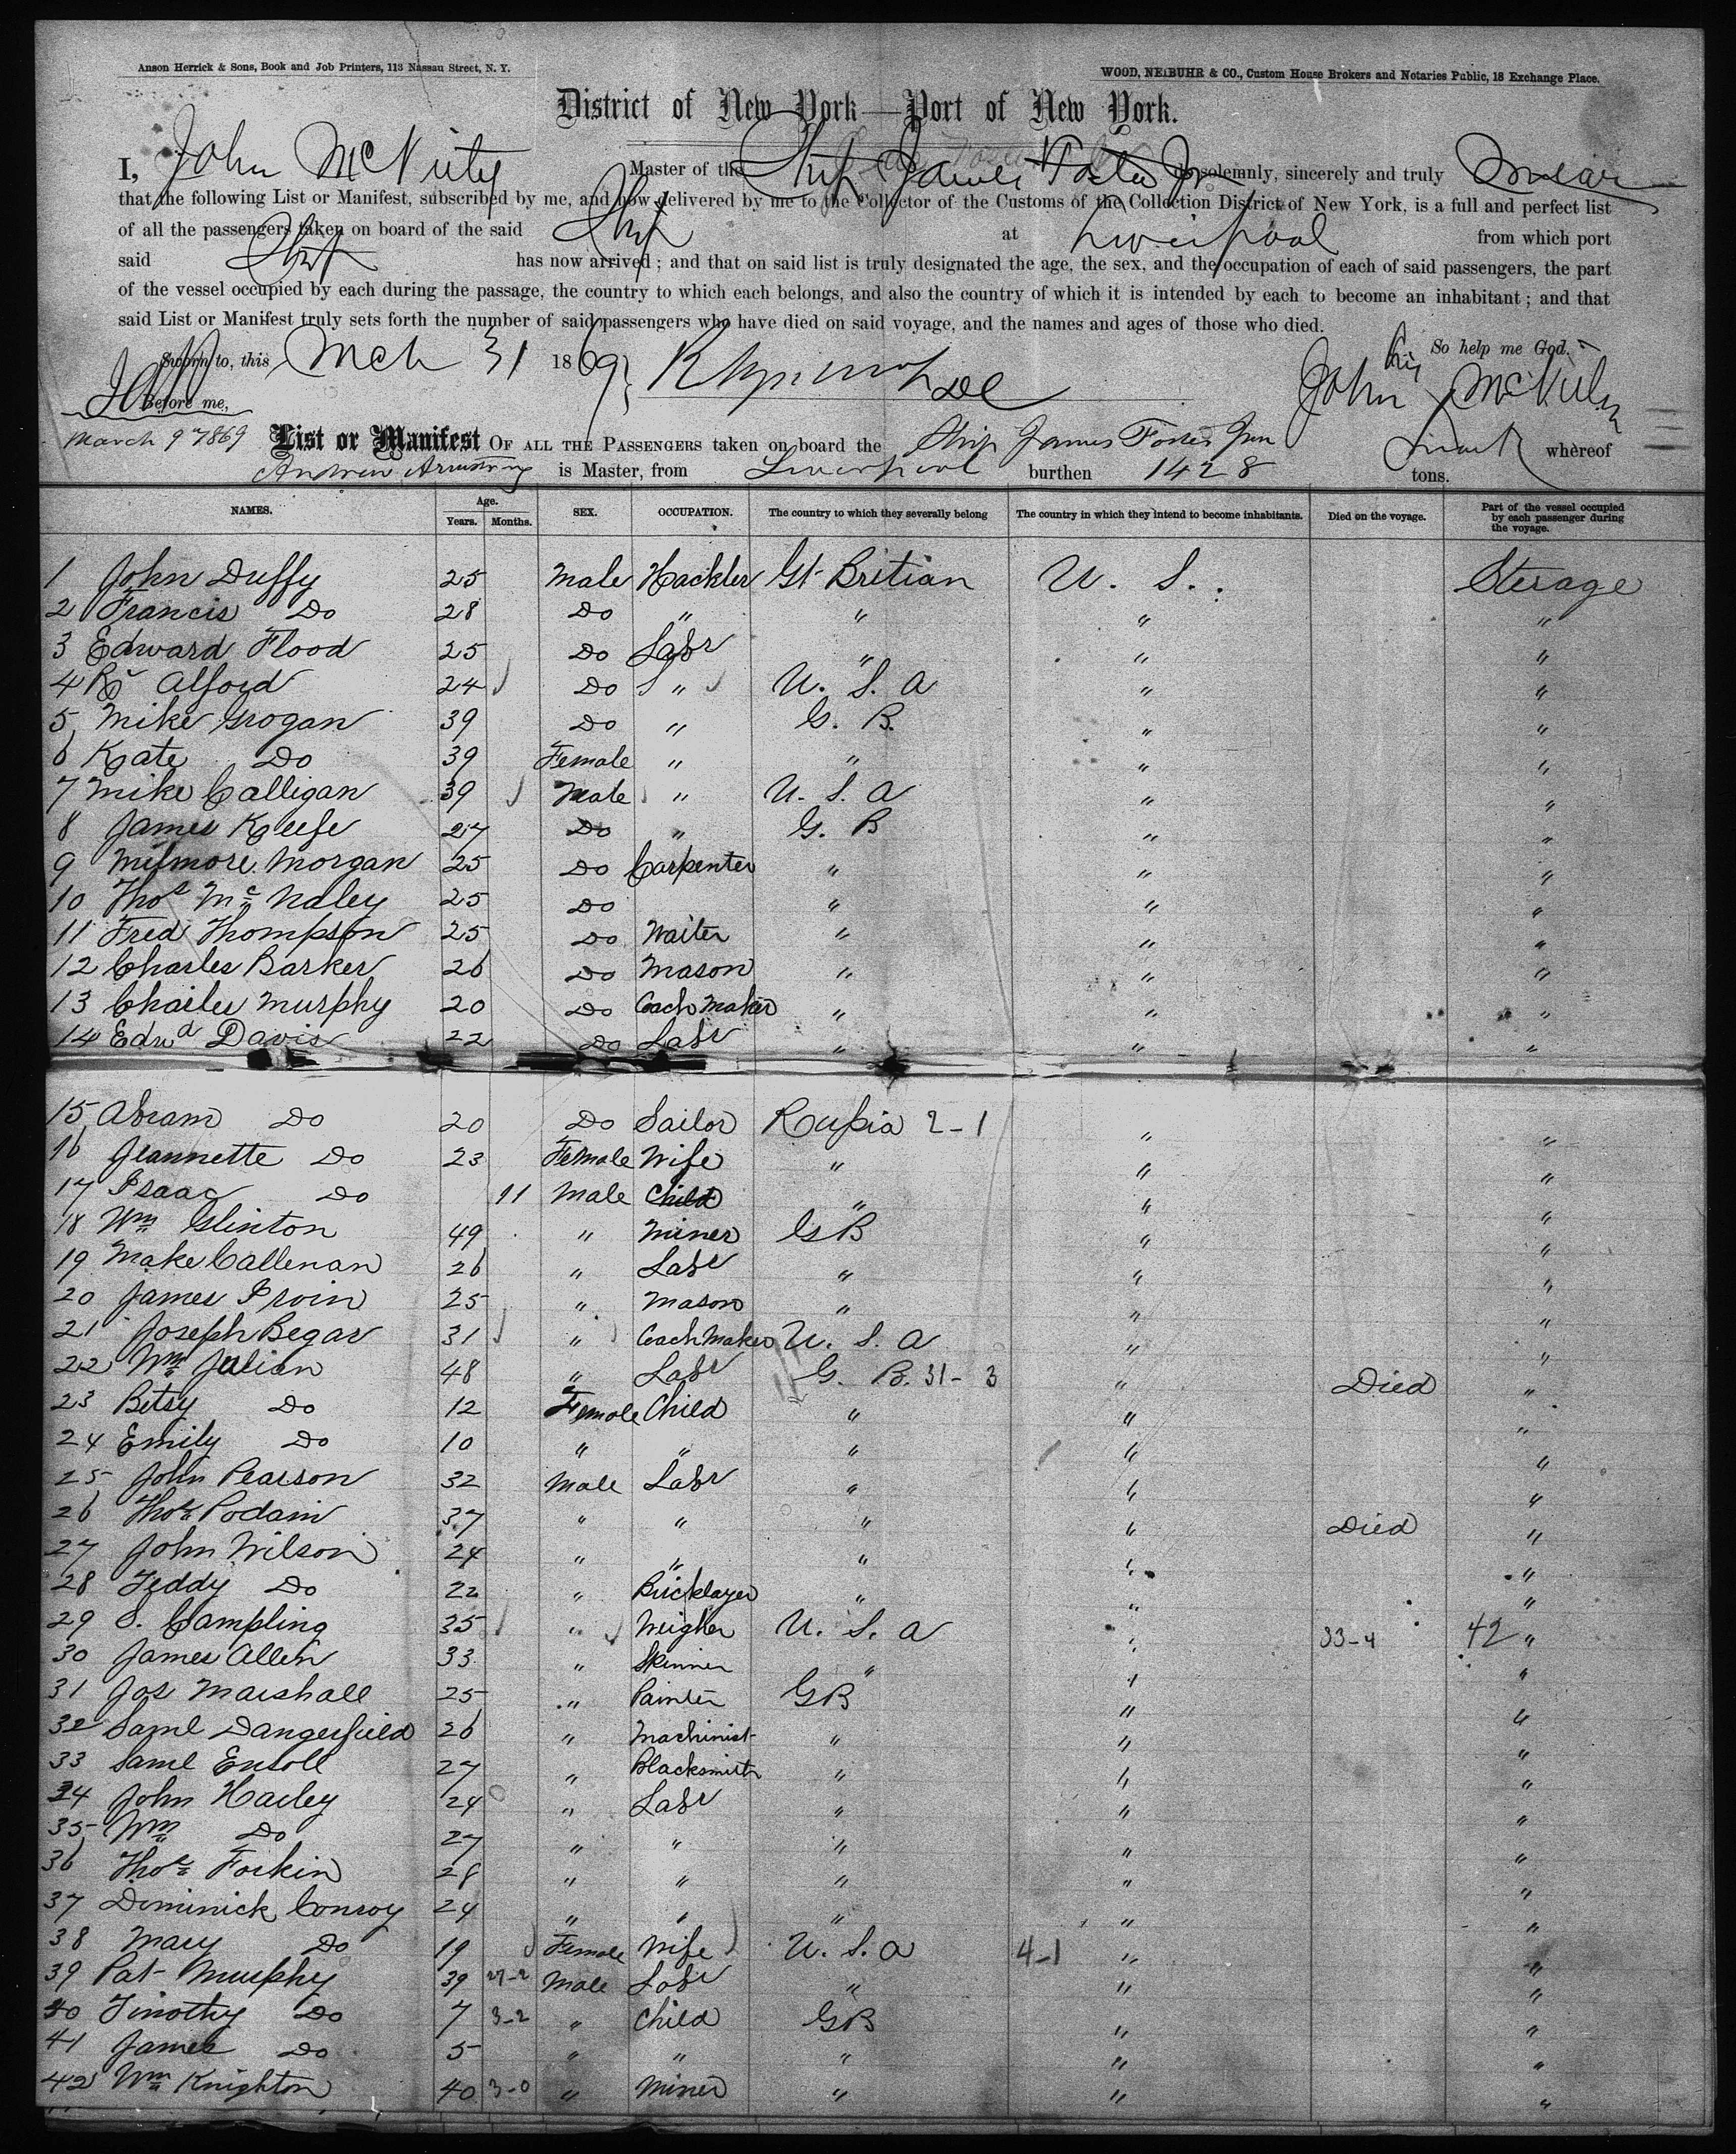 Anson Herrick & Sons, Book and Job Printers, 113 Nassau Street, N. Y.
WOOD, NEIBUHR & CO., Custom House Brokers and Notaries Public, 18 Exchange Place.
District of New York—Port of New York.
I, John McNulty Master of the Ship James Foster Jr do solemnly, sincerely and truly swear
that the following List or Manifest, subscribed by me, and now delivered by me to the Collector of the Customs of the Collection District of New York, is a full and perfect list
of all the passengers taken on board of the said Ship at Liverpool from which port
said Ship has now arrived; and that on said list is truly designated the age, the sex, and the occupation of each of said passengers, the part
of the vessel occupied by each during the passage, the country to which each belongs, and also the country of which it is intended by each to become an inhabitant; and that
said List or Manifest truly sets forth the number of said passengers who have died on said voyage, and the names and ages of those who died.
So help me God.
Sworn to, this Mch 31 1869 his
Before me, John x McNulty
mark
March 9 1869 List or Manifest OF ALL THE PASSENGERS taken on board the Ship James Foster Jun whereof
Andrew Armstrong is Master, from Liverpool burthen 1428 tons.
NAMES. Age. Years. Months. SEX. OCCUPATION. The country to which they severally belong The country in which they intend to become inhabitants. Died on the voyage. Part of the vessel occupied by each passenger during the voyage.
1 John Duffy 25 Male Hackler Gt Britian U. S. Sterage
2 Francis Do 28 Do " " " "
3 Edward Flood 25 Do Labr " " "
4 Rd Alford 24 Do " U. S. A " "
5 Mike Grogan 39 Do " G. B. " "
6 Kate Do 39 Female " " " "
7 Mike Calligan 39 Male " U. S. A " "
8 James Keefe 27 Do " G. B " "
9 Morgan 25 Do Carpenter " " "
10 Thos Mc Naley 25 Do " " "
11 Fred Thompson 25 Do Waiter " " "
12 Charles Barker 26 Do Mason " " "
13 Charles Murphy 20 Do Coach Maker " " "
14 Edwd Davis 22 Do Labr " " "
15 Abram Do 20 Do Sailor Russia 2-1 " "
16 Jeannette Do 23 Female Wife " " "
17 Isaac Do 11 Male Child " " "
18 Wm Glinton 49 " Miner GB " "
19 Make Callenan 26 " Labr " " "
20 James Irvin 25 " Mason " " "
21 Joseph Begar 31 " Coach Maker U. S. A " "
22 Wm Julian 48 " Labr G. B. 31-3 " Died "
23 Betsy Do 12 Female Child " " "
24 Emily Do 10 " " " " "
25 John Pearson 32 Male Labr " " "
26 Thos Podain 37 " " " " Died "
27 John Wilson 24 " " " " "
28 Teddy Do 22 " Bricklayer " " "
29 S. Campling 35 " Weigher U. S. A " 33-4 42 "
30 James Allen 33 " Skinner " " "
31 Jos Marshall 25 " Painter GB " "
32 Saml Dangerfield 26 " Machinist " " "
33 Saml Ensoll 27 " Blacksmith " " "
34 John Harley 24 " Labr " " "
35 Wm Do 27 " " " " "
36 Thos Forkin 28 " " " " "
37 Dominick Conroy 24 " " " " "
38 Mary Do 19 Female Wife U. S. A 4-1 " "
39 Pat Murphy 39 27-2 Male Labr " " "
40 Timothy Do 7 3-2 " Child GB " "
41 James Do 5 " " " " "
42 Wm Knighton 40 3-0 " Miner " " "